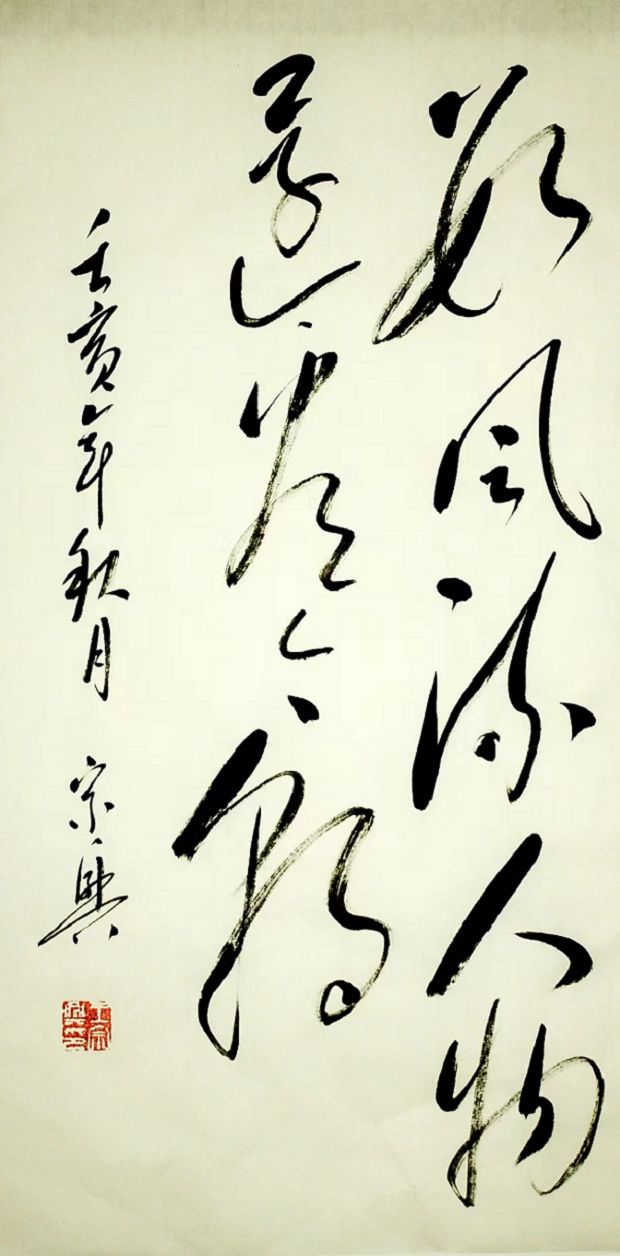 数风流人物
还看今朝
壬寅年秋月 宗兴